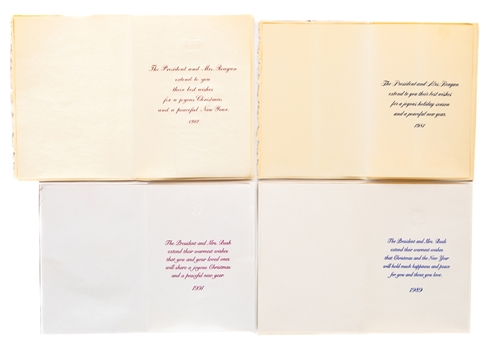 The President and Mrs. Reagan
extend to you
their best wishes
for a joyous Christmas
and a peaceful New Year.
The President and Mrs. Reagan
extend to you their best wishes
for a joyous holiday season
and a peaceful new year.
1981
The President and Mrs. Bush
extend their warmest wishes
that you and your loved ones
will share a joyous Christmas
and a peaceful new year
The President and Mrs. Bush
extend their warmest wishes
that Christmas and the New Year
will hold much happiness and peace
for you and those you love.
1989